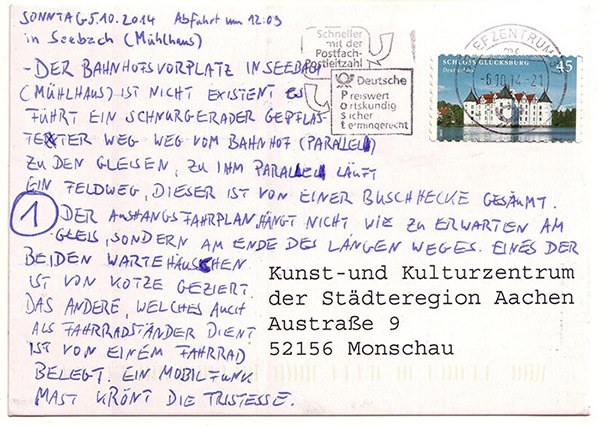 SONNTAG 5.10.2014 Abfahrt um 12:09
in Seebach (Mühlhaus)
- DER BAHNHOFSVORPLATZ IN SEEBACH
(MÜHLHAUS) IST NICHT EXISTENT ES
FÜHRT EIN SCHNURGERADER GEPFLAS-
TERTER WEG WEG VOM BAHNHOF (PARALLEL)
ZU DEN GLEISEN, ZU IHM PARALLEL LÄUFT
EIN FELDWEG, DIESER IST VON EINER BUSCHHECKE GESÄUMT.
1 DER AUSHANGSFAHRPLAN HÄNGT NICHT WIE ZU ERWARTEN AM
GLEIS, SONDERN AM ENDE DES LANGEN WEGES. EINES DER
BEIDEN WARTEHÄUSCHEN
IST VON KOTZE GEZIERT.
DAS ANDERE, WELCHES AUCH
ALS FAHRRADSTÄNDER DIENT
IST VON EINEM FAHRRAD
BELEGT. EIN MOBILFUNK
MAST KRÖNT DIE TRISTESSE.
Schneller
mit der
Postfach-
Postleitzahl
Deutsche
Preiswert
Ortskundig
Sicher
termingerecht
BRIEFZENTRUM
-6.10.14-21
SCHLOSS GLÜCKSBURG
Deutschland
45
Kunst-und Kulturzentrum
der Städteregion Aachen
Austraße 9
52156 Monschau